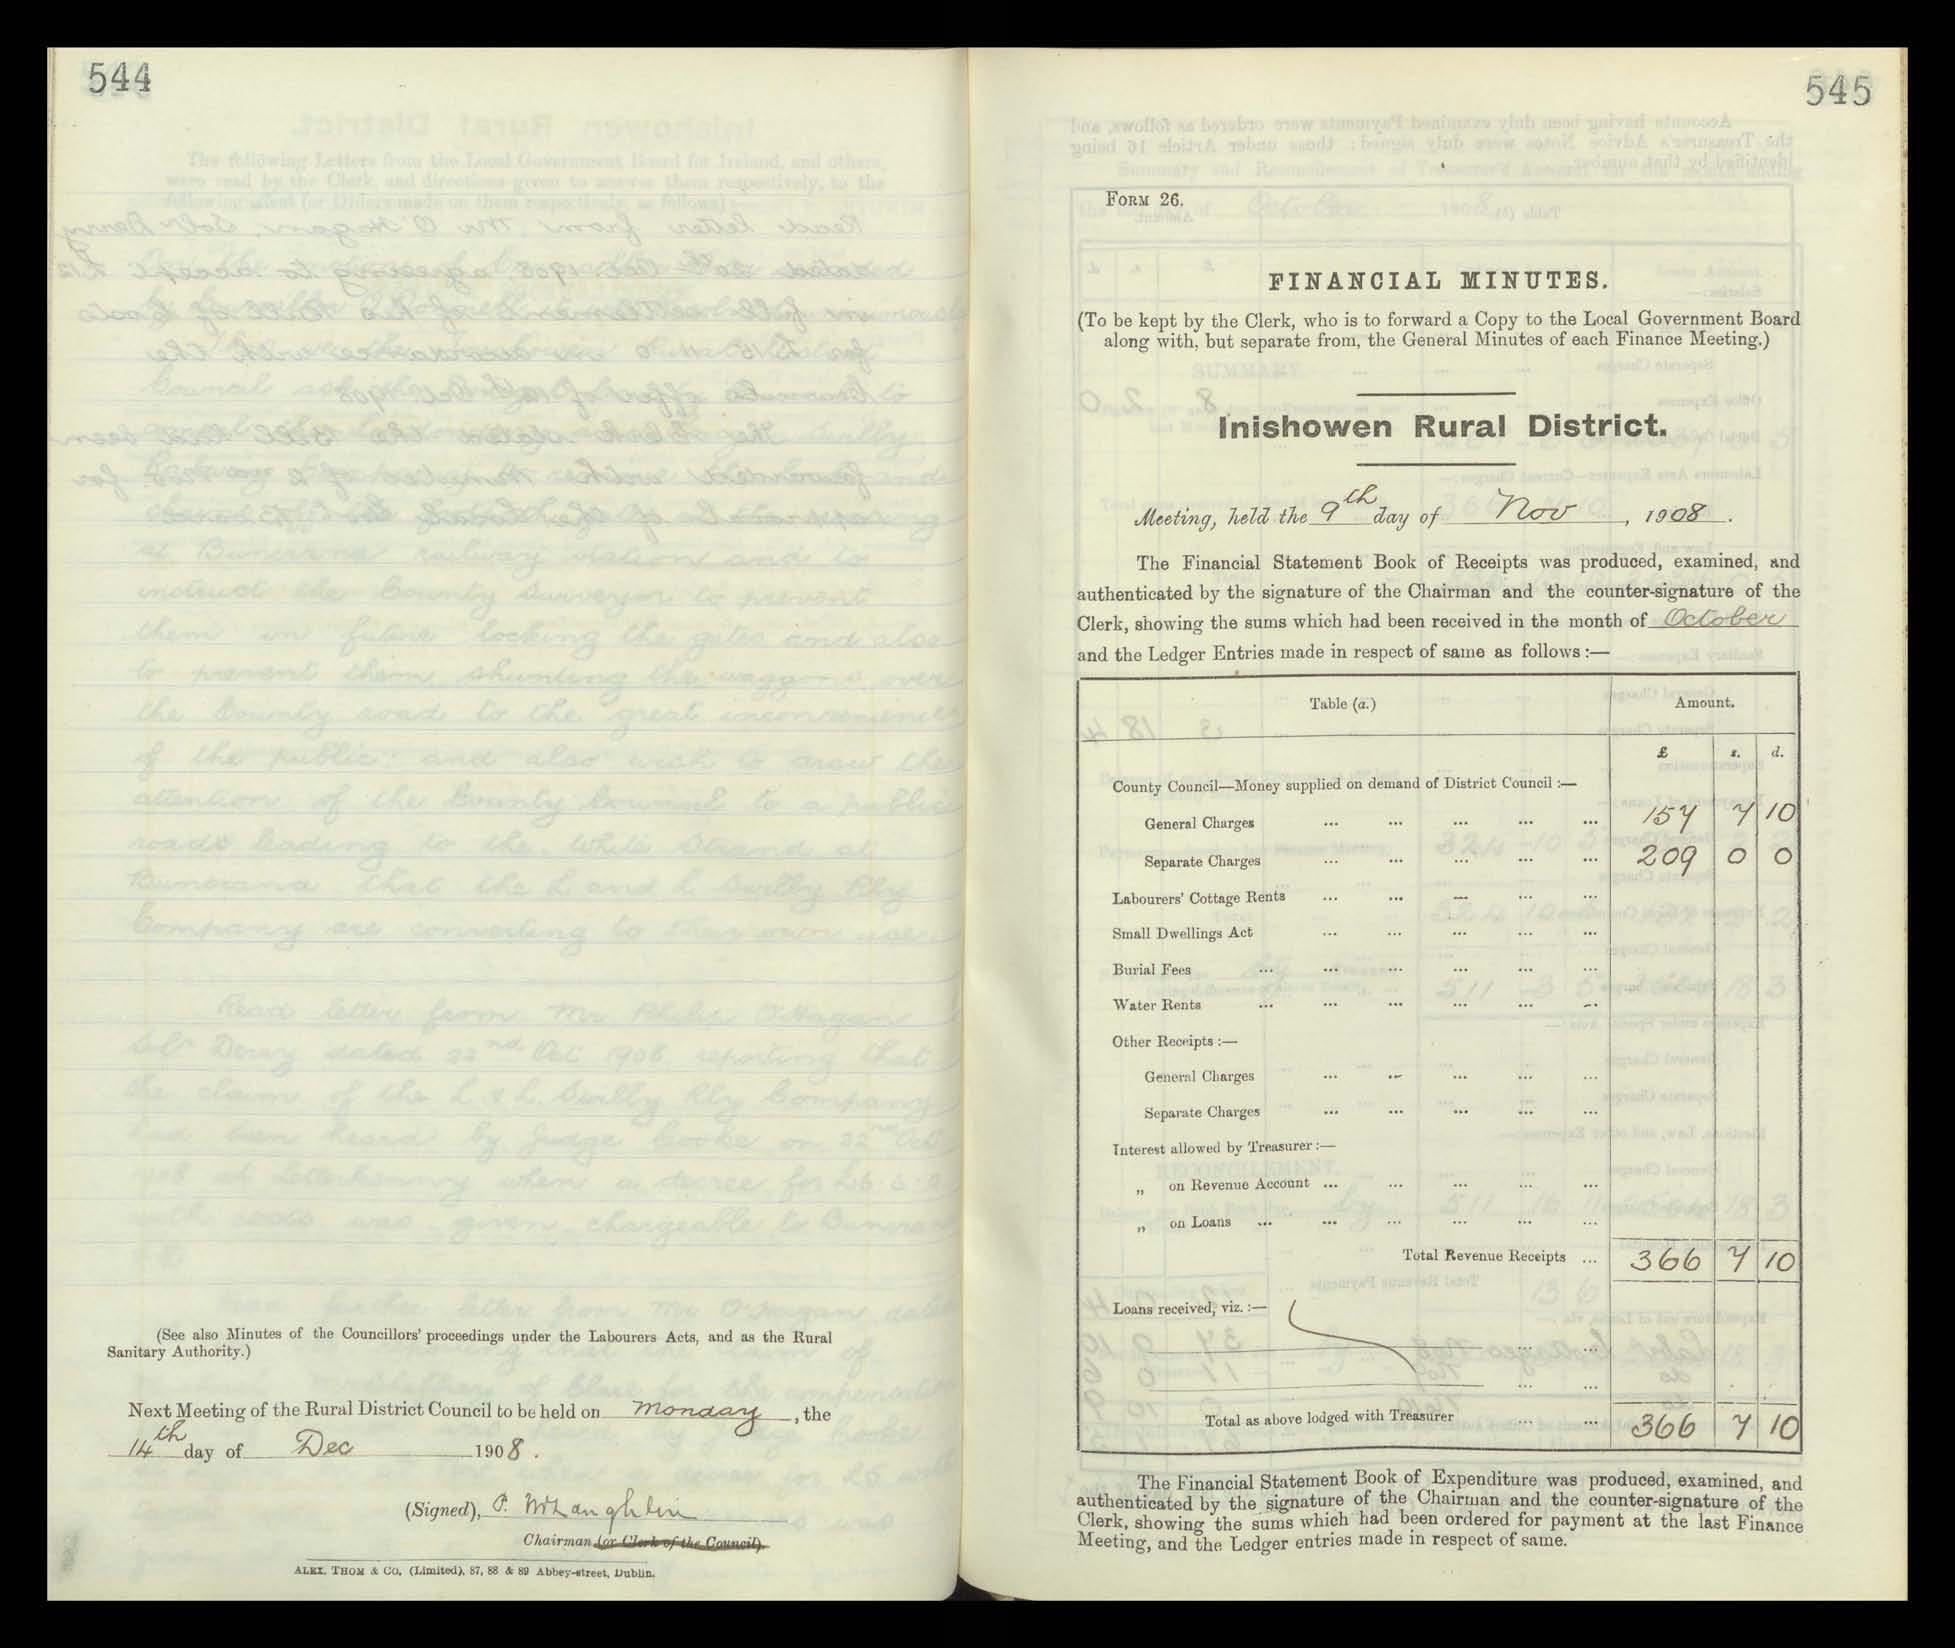 544
(See also Minutes of the Councillors' proceedings under the Labourers Acts, and as the Rural
Sanitary Authority.)
Next Meeting of the Rural District Council to be held on Monday, the
14th day of Dec 1908.
(Signed), P. McLaughlin
Chairman (or Clerk of the Council).
ALEX. THOM & Co. (Limited), 87, 88 & 89 Abbey-street, Dublin.
545
FORM 26.
FINANCIAL MINUTES.
(To be kept by the Clerk, who is to forward a Copy to the Local Government Board
along with, but separate from, the General Minutes of each Finance Meeting.)
Inishowen Rural District.
Meeting, held the 9th day of Nov, 1908.
The Financial Statement Book of Receipts was produced, examined, and
authenticated by the signature of the Chairman and the counter-signature of the
Clerk, showing the sums which had been received in the month of October
and the Ledger Entries made in respect of same as follows:—
Table (a.) Amount.
£ s. d.
County Council—Money supplied on demand of District Council:—
General Charges ... ... ... ... ... 157 7 10
Separate Charges ... ... ... ... ... 209 0 0
Labourers' Cottage Rents ... ... ... ... ...
Small Dwellings Act ... ... ... ... ...
Burial Fees ... ... ... ... ... ...
Water Rents ... ... ... ... ... ...
Other Receipts:—
General Charges ... ... ... ... ...
Separate Charges ... ... ... ... ...
Interest allowed by Treasurer:—
„ on Revenue Account ... ... ... ... ...
„ on Loans ... ... ... ... ... ...
Total Revenue Receipts ... 366 7 10
Loans received, viz.:—
... ...
... ...
Total as above lodged with Treasurer ... ... 366 7 10
The Financial Statement Book of Expenditure was produced, examined, and
authenticated by the signature of the Chairman and the counter-signature of the
Clerk, showing the sums which had been ordered for payment at the last Finance
Meeting, and the Ledger entries made in respect of same.